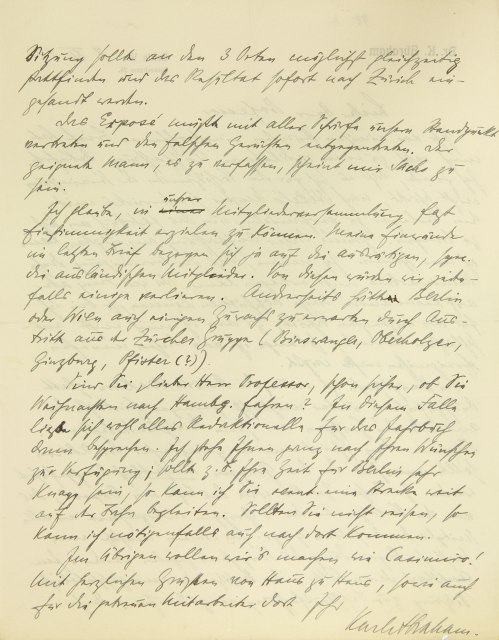 Sitzung sollte an den 3 Orten möglichst gleichzeitig
stattfinden und das Resultat sofort nach Zürich ein-
gesandt werden.
Das Exposé müßte mit aller Schärfe unsern Standpunkt
vertreten und den falschen Gerüchten entgegentreten. Der
geeignete Mann, es zu verfassen, scheint mir Sachs zu
sein.
Ich glaube, in unsrer Mitgliederversammlung fast
Einstimmigkeit erzielen zu können. Meine Einwände
im letzten Brief bezogen sich ja auf die auswärtigen, spez.
die ausländischen Mitglieder. Von diesen würden wir jeden-
falls einige verlieren. Anderseits hätten Berlin
oder Wien auch einigen Zuwachs zu erwarten durch Aus-
tritt aus der Zürcher Gruppe (Binswanger, Oberholzer,
Ginzburg, Pfister (?))
Sind Sie, lieber Herr Professor, schon sicher, ob Sie
Weihnachten nach Hambg. fahren? In diesem Falle
ließe sich wohl alles Redaktionelle für das Jahrbuch
dann besprechen. Ich stehe Ihnen ganz nach Ihren Wünschen
zur Verfügung; sollte z. B. Ihre Zeit für Berlin sehr
knapp sein, so kann ich Sie event. eine Strecke weit
auf der Bahn begleiten. Sollten Sie nicht reisen, so
kann ich nötigenfalls auch nach dort kommen.
Im Übrigen wollen wir's machen wie Casimiro!
Mit herzlichen Grüßen von Haus zu Haus, sowie auch
für die getreuen Mitarbeiter dort Ihr
Karl Abraham.